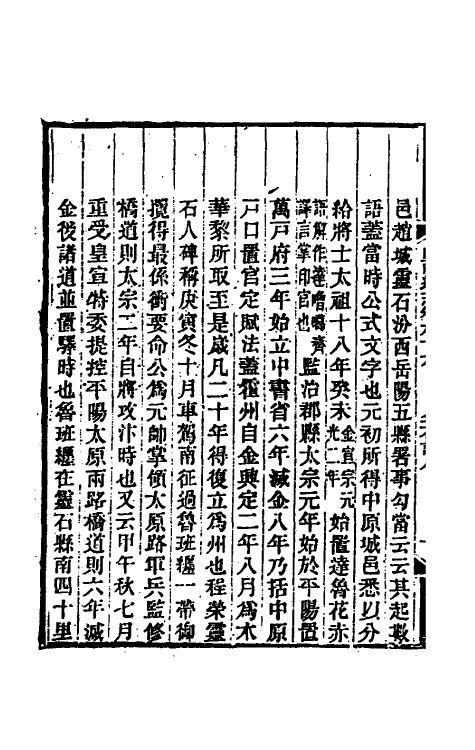 邑趙城靈石汾西岳陽五縣署事勾當云云其起數
語蓋當時公式文字也元初所得中原城邑悉以分
給將士太祖十八年癸未金宣宗元光二年始置達魯花赤
監治郡縣太宗元年始於平陽置
萬戸府三年始立中書省六年滅金八年乃括中原
戸口置官定賦法蓋霍州自金興定二年八月爲木
華黎所取至是歲凡二十年得復立爲州也程榮靈
石人碑稱庚寅冬十月車駕南征過魯班纏一帶御
攬得最係衝要命公爲元帥掌領太原路軍兵監修
橋道則太宗二年自將攻汴時也又云甲午秋七月
重受皇宣特委提控平陽太原兩路橋道則六年滅
金後諸道並置驛時也魯班纏在靈石縣南四十里